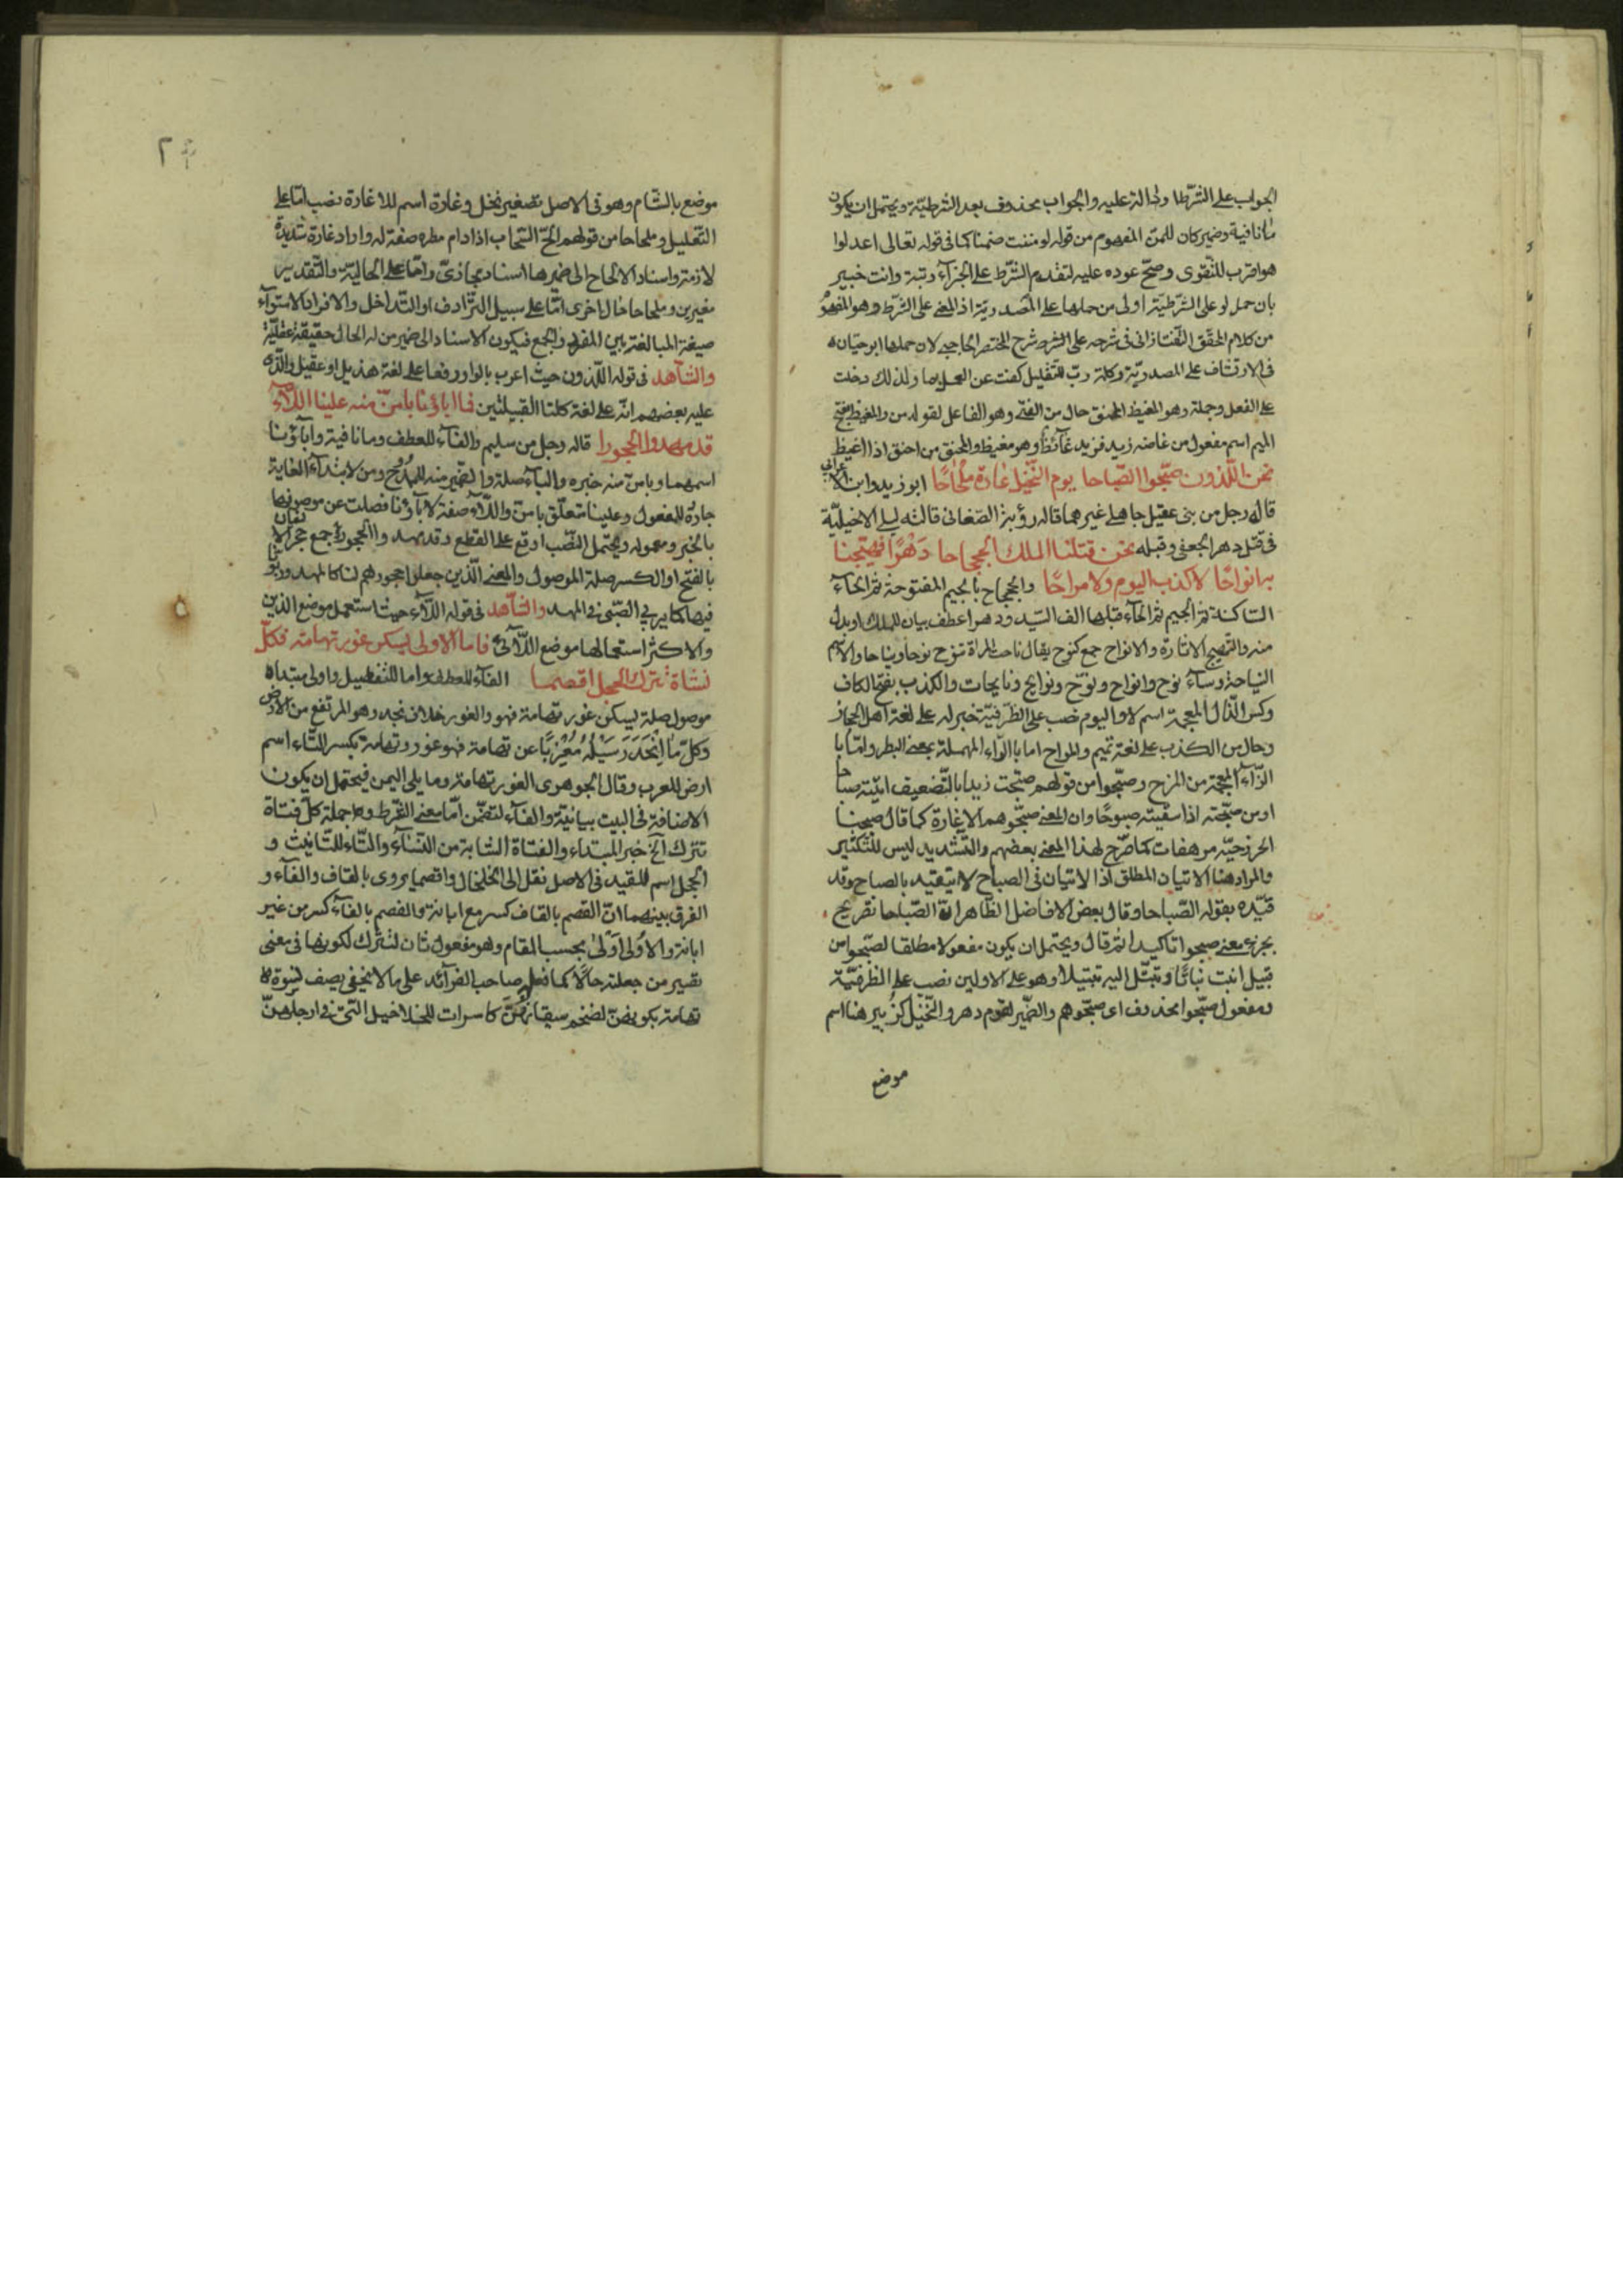 الجواب على الشرط او لدلالته عليه والجواب محذوف بعد الشرطية ويحتمل ان يكون
ما نافية وضمير كان للمن المفهوم من قوله لو مننت ضمنا كما في قوله تعالى اعدلوا
هو اقرب للتقوى وصح عوده عليه لتقدم الشرط على الجزآء رتبة وانت خبير
بان حمل لو على الشرطية اولى من حملها على المصدرية اذ المعنى على الشرط وهو المفهوم
من كلام المحقق التفتازاني في شرحه على الشرح شرح المختصر الحاجبي لان حملها ابو حيان
في الارتشاف على المصدرية وكلمة رب للتقليل كفت عن العمل بما ولذلك دخلت
على الفعل وجملة وهو المغيظ المحنق حال من الفتى وهو الفاعل لقوله من والمغيظ بفتح
الميم اسم مفعول من غاضه زيد فزيد غآئظ وهو مغيظ والمحنق من احنق اذا اغيظ
نحن اللذون صبحوا الصباحا يوم النخيل غارة ملحاحا ابو زيد وابن الاعرابي
قاله رجل من بني عقيل جاهلي غيرهما قاله رؤبة الصغاني قالته ليلى الاخيلية
في قتل دهر الجعفي وقبله نحن قتلنا الملك الججاحا دهرا فهيجنا
به انواحا لا كذب اليوم ولا مراحا والججاح بالجيم المفتوحة ثم الحآء
الساكنة ثم الجيم ثم الحآء قبلها الف السيد ودهرا عطف بيان للملك او بدل
منه والتهييج الاثارة والانواح جمع كنوح يقال ناحت المراة تنوح نوحا ونياحا والاسم
النياحة ونسآء نوح وانواح ونوح ونوايح ونايحات والكذب بفتح الكاف
وكسر الذال المعجمة اسم لا واليوم نصب على الظرفية خبر له على لغة اهل الحجاز
وحال من الكذب على لغة تميم والمراح اما بالرآء المهملة بمعنى البطر واما با
الزآء المعجمة من المزح وصبحوا من قولهم صبحت زيدا بالتضعيف اتيته صباحا
او من صبحته اذا سقيته صبوحا وان المعنى صبحوهم الاغارة كما قال صبحنا
الخزرجية مرهفات كما صرح لهذا المعنى بعضهم والتشديد ليس للتكثير
والمراد هنا الاتيان المطلق اذ الاتيان في الصباح لا يتقيد بالصباح وقد
قيده بقوله الصباحا وقال بعض الافاضل الظاهر ان الصباحا تصريح
بجزء معنى صبحوا تاكيدا ثم قال ويحتمل ان يكون مفعولا مطلقا لصبحوا من
قبيل انبت نباتا وتبتل اليه تبتيلا وهو على الاولين نصب على الظرفية
ومفعول صبحوا محذوف اى صبحوهم والضمير لقوم دهر والنخيل كزبير هنا اسم
موضع
٢
موضع بالشام وهو في الاصل تصغير نخل وغارة اسم للاغارة نصب اما على
التعليل وملحاحا من قولهم الح السحاب اذا دام مطره صفة له واراد غارة شديدة
لازمة واسناد الالحاح الى ضميرها اسناد مجازى واما على الحالية والتقدير
مغيرين وملحاحا حال اخرى اما على سبيل الترادف او التداخل والافراد لاستوآء
صيغة المبالغة بين المفرد والجمع فيكون الاسناد الى ضمير من له الحال حقيقة عقلية
والشاهد في قوله اللذون حيث اعرب بالواو رفعا على لغة هذيل او عقيل والذى
عليه بعضهم انه على لغة كلتا القبيلتين فما اباؤنا بامن منه علينا اللآء
قد مهدوا الحجورا قاله رجل من سليم والفآء للعطف وما نافية واباؤنا
اسمها وبامن منه خبره والبآء صلة والضمير منه للممدوح ومن لابتدآء الغاية
جارة للمفعول وعلينا متعلق بامن واللآء صفة لاباؤنا فصلت عن موصوفها
بالخبر ومعموله ويحتمل النصب اوقع على القطع وقد مهد والحجور جمع حجر
بالفتح او الكسر صلة الموصول والمعنى الذين جعلوا حجورهم لنا كالمهد وربو
فيها كما يربي الصبي في المهد والشاهد في قوله اللآء حيث استعمل موضع الذين
والاكثر استعمالها موضع اللآئي فاما الاولى يسكن غور تهامة فكل
فتاة تترك الحجل اقصما الفآء للعطف واما للتفصيل واولى مبتداء
موصول صلة يسكن غور تهامة فهو والغور خلاف نجد وهو المرتفع من الارض
وكل ما انحدر سيله مغربا عن تهامة فهو غور وتهامة بكسر التاء اسم
ارض للعرب وقال الجوهرى الغور تهامة وما يلي اليمن فيحتمل ان يكون
الاضافة في البيت بيانية والفآء لتضمن اما معنى الشرط وجملة كل فتاة
تترك الخ خبر المبتداء والفتاة الشابة من النسآء والتاء للتانيث و
الحجل اسم للقيد في الاصل نقل الى الخلخال واقصما يروى بالقاف والفآء و
الفرق بينهما ان القصم بالقاف كسر مع ابانة والفصم بالفآء كسر من غير
ابانة والاولى اولى بحسب المقام وهو مفعول ثان لتترك لكونها في معنى
تصير من جعلته حالا كما فعله صاحب الفرآئد على ما لا يخفى يصف نسوة
تهامة بكونهن لضخم سيقانهن كاسرات للخلاخيل التي في ارجلهن